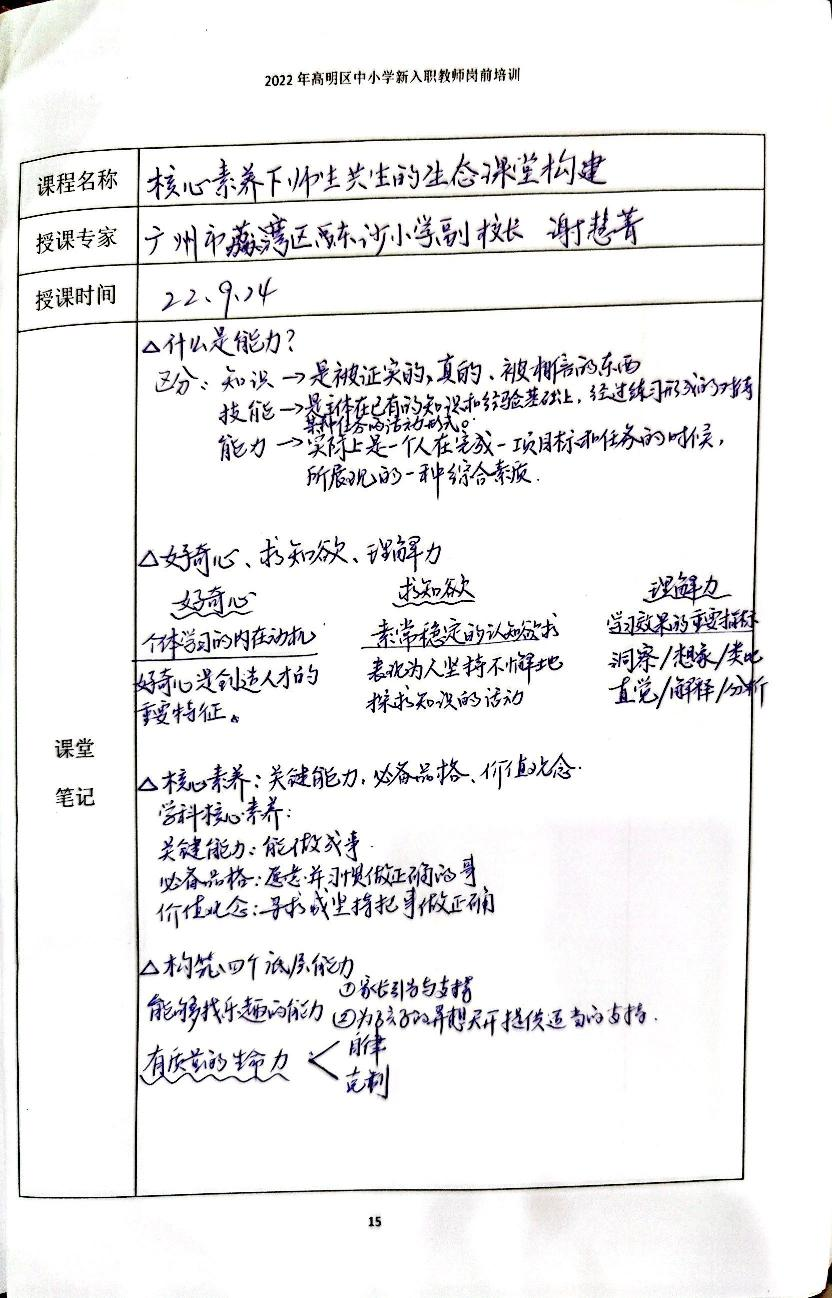 2022年高明区中小学新入职教师岗前培训
课程名称 核心素养下师生共生的生态课堂构建
授课专家 广州市荔湾区西东沙小学副校长 谢慧菁
授课时间 22、9、24
△什么是能力?
区分:知识→是被证实的、真的、被相信的东西
技能→是主体在已有的知识和经验基础上,经过练习形成的对待
某种任务的活动形式。
能力→实际上是一个人在完成一项目标和任务的时候,
所展现的一种综合素质.
△好奇心、求知欲、理解力
好奇心 求知欲 理解力
个体学习的内在动机 素常稳定的认知欲求 学习效果的重要指标
好奇心是创造人才的 表现为人坚持不懈地 洞察/想象/类比
重要特征。 探求知识的活动 直觉/解释/分析
课堂
笔记
△核心素养:关键能力,必备品格、价值观念.
学科核心素养:
关键能力:能做成事.
必备品格:愿意并习惯做正确的事
价值观念:寻求或坚持把事做正确
△构筑四个底层能力
能够找乐趣的能力 ①家长引导与支撑
②为孩子的异想天开提供适当的支持.
有质量的生命力 自律
克制
15